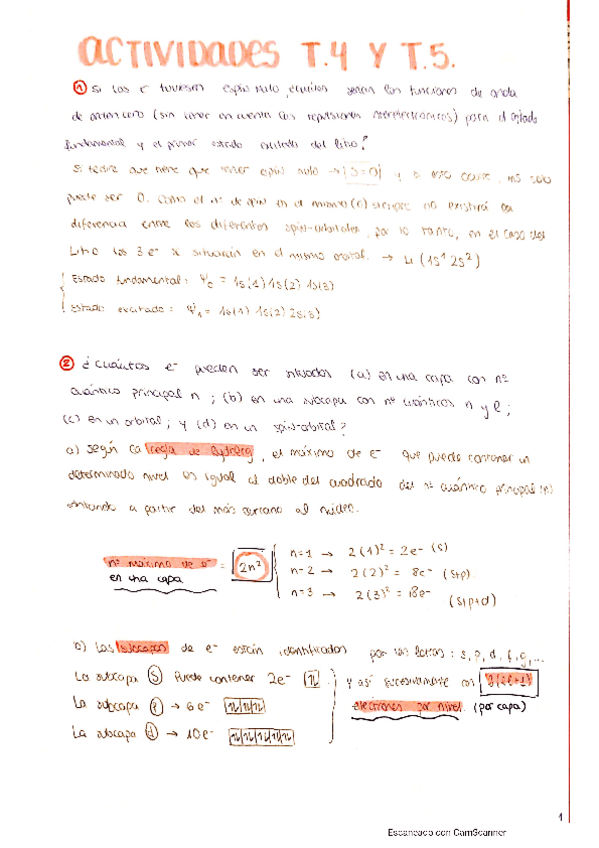 ACTIVIDADES T.4 Y T.5.
① Si los e⁻ tuviesen espín nulo, ¿cuáles serían las funciones de onda
de orden cero (sin tener en cuenta las repulsiones interelectrónicas) para el estado
fundamental y el primer estado excitado del litio?
Si tiene que tener espín nulo → |S=0| y ms solo
puede ser 0. Como el nº de spin en el mismo (0) siempre no existirá
diferencia entre los diferentes spin-orbitales, por lo tanto, en el caso del
Litio los 3 e⁻ se situarán en el mismo orbital. → Li (1s¹ 2s²)
Estado fundamental: Ψ₀ = 1s(1) 1s(2) 1s(3)
Estado excitado: Ψ₁ = 1s(1) 1s(2) 2s(3)
② ¿Cuántos e⁻ pueden ser situados (a) en una capa con nº
cuántico principal n; (b) en una subcapa con nº cuánticos n y l;
(c) en un orbital; y (d) en un spin-orbital?
a) Según la regla de Rydberg, el máximo de e⁻ que puede contener un
determinado nivel es igual al doble del cuadrado del nº cuántico principal (n)
contando a partir del más cercano al núcleo.
nº máximo de e⁻ en una capa = 2n²
n=1 → 2(1)² = 2e⁻ (s)
n=2 → 2(2)² = 8e⁻ (s+p)
n=3 → 2(3)² = 18e⁻ (s+p+d)
b) Las subcapas de e⁻ están identificados por las letras: s, p, d, f, g,...
La subcapa (s) Puede contener 2e⁻
La subcapa (p) → 6e⁻
La subcapa (d) → 10e⁻
y así sucesivamente con
electrones por nivel. (por capa)
1
Escaneado con CamScanner